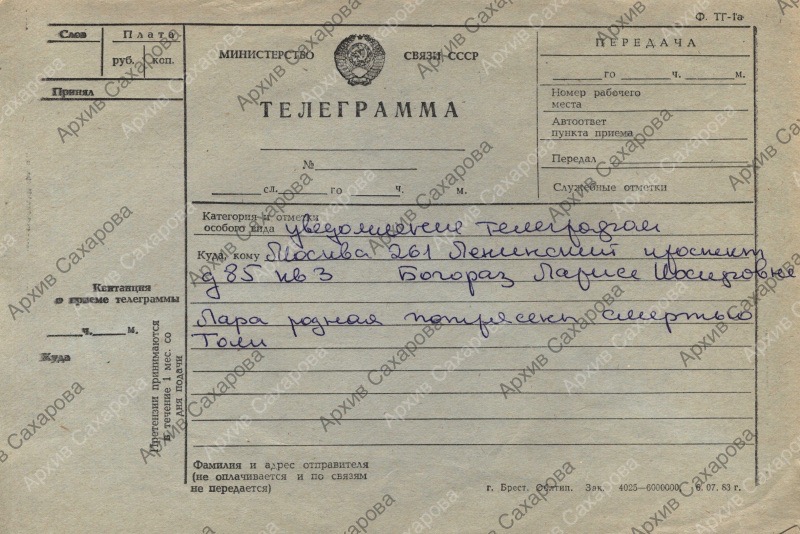 Ф. ТГ-1а
Слов
Плата
руб. коп.
Принял
МИНИСТЕРСТВО СВЯЗИ СССР
ТЕЛЕГРАММА
№
сл. го ч. м.
ПЕРЕДАЧА
го ч. м.
Номер рабочего
места
Автоответ
пункта приема
Передал
Служебные отметки
Категория и отметки
особого вида уведомление телеграфом
Куда, кому Москва 261 Ленинский проспект
д 85 кв 3 Богораз Ларисе Иосифовне
Лара родная потрясены смертью
Толи
Квитанция
о приеме телеграммы
ч. м.
Куда
Претензии принимаются
в течение 1 мес. со
дня подачи
Фамилия и адрес отправителя
(не оплачивается и по связям
не передается)
г. Брест. Офтип. Зак. 4025—6000000. 6. 07. 83 г.
Архив Сахарова